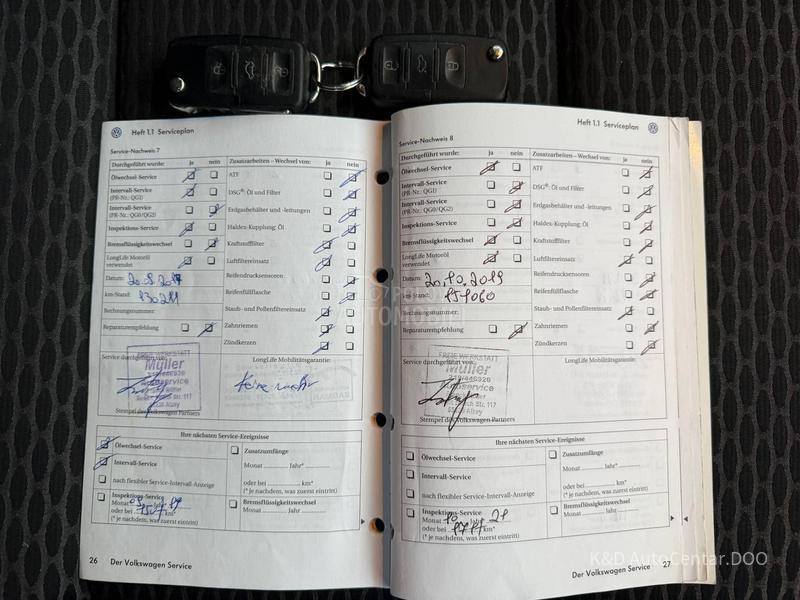 Heft 1.1 Serviceplan
Service-Nachweis 7
Durchgeführt wurde: ja nein
Ölwechsel-Service
Intervall-Service
(PR-Nr.: QG1)
Intervall-Service
(PR-Nr.: QG0/QG2)
Inspektions-Service
Bremsflüssigkeitswechsel
LongLife Motoröl
verwendet
Datum:
km-Stand: 130211
Rechnungsnummer:
Reparaturempfehlung
Zusatzarbeiten – Wechsel von: ja nein
ATF
DSG®: Öl und Filter
Erdgasbehälter und -leitungen
Haldex-Kupplung: Öl
Kraftstofffilter
Luftfiltereinsatz
Reifendrucksensoren
Reifenfüllflasche
Staub- und Pollenfiltereinsatz
Zahnriemen
Zündkerzen
Service durchgeführt von:
FREIE WERKSTATT
Müller
Stempel des Volkswagen Partners
LongLife Mobilitätsgarantie:
Ihre nächsten Service-Ereignisse
Ölwechsel-Service
Intervall-Service
nach flexibler Service-Intervall-Anzeige
Inspektions-Service
Monat Jahr*
oder bei km*
(* je nachdem, was zuerst eintritt)
Zusatzumfänge
Monat Jahr*
oder bei km*
(* je nachdem, was zuerst eintritt)
Bremsflüssigkeitswechsel
Monat Jahr
26 Der Volkswagen Service
Heft 1.1 Serviceplan
Service-Nachweis 8
Durchgeführt wurde: ja nein
Ölwechsel-Service
Intervall-Service
(PR-Nr.: QG1)
Intervall-Service
(PR-Nr.: QG0/QG2)
Inspektions-Service
Bremsflüssigkeitswechsel
LongLife Motoröl
verwendet
Datum: 20.10.2019
km-Stand: 151060
Rechnungsnummer:
Reparaturempfehlung
Zusatzarbeiten – Wechsel von: ja nein
ATF
DSG®: Öl und Filter
Erdgasbehälter und -leitungen
Haldex-Kupplung: Öl
Kraftstofffilter
Luftfiltereinsatz
Reifendrucksensoren
Reifenfüllflasche
Staub- und Pollenfiltereinsatz
Zahnriemen
Zündkerzen
Service durchgeführt von:
FREIE WERKSTATT
Müller
Stempel des Volkswagen Partners
LongLife Mobilitätsgarantie:
Ihre nächsten Service-Ereignisse
Ölwechsel-Service
Intervall-Service
nach flexibler Service-Intervall-Anzeige
Inspektions-Service
Monat 10 Jahr 21
oder bei km*
(* je nachdem, was zuerst eintritt)
Zusatzumfänge
Monat Jahr*
oder bei km*
(* je nachdem, was zuerst eintritt)
Bremsflüssigkeitswechsel
Monat Jahr
Der Volkswagen Service 27
K&D AutoCentar.DOO